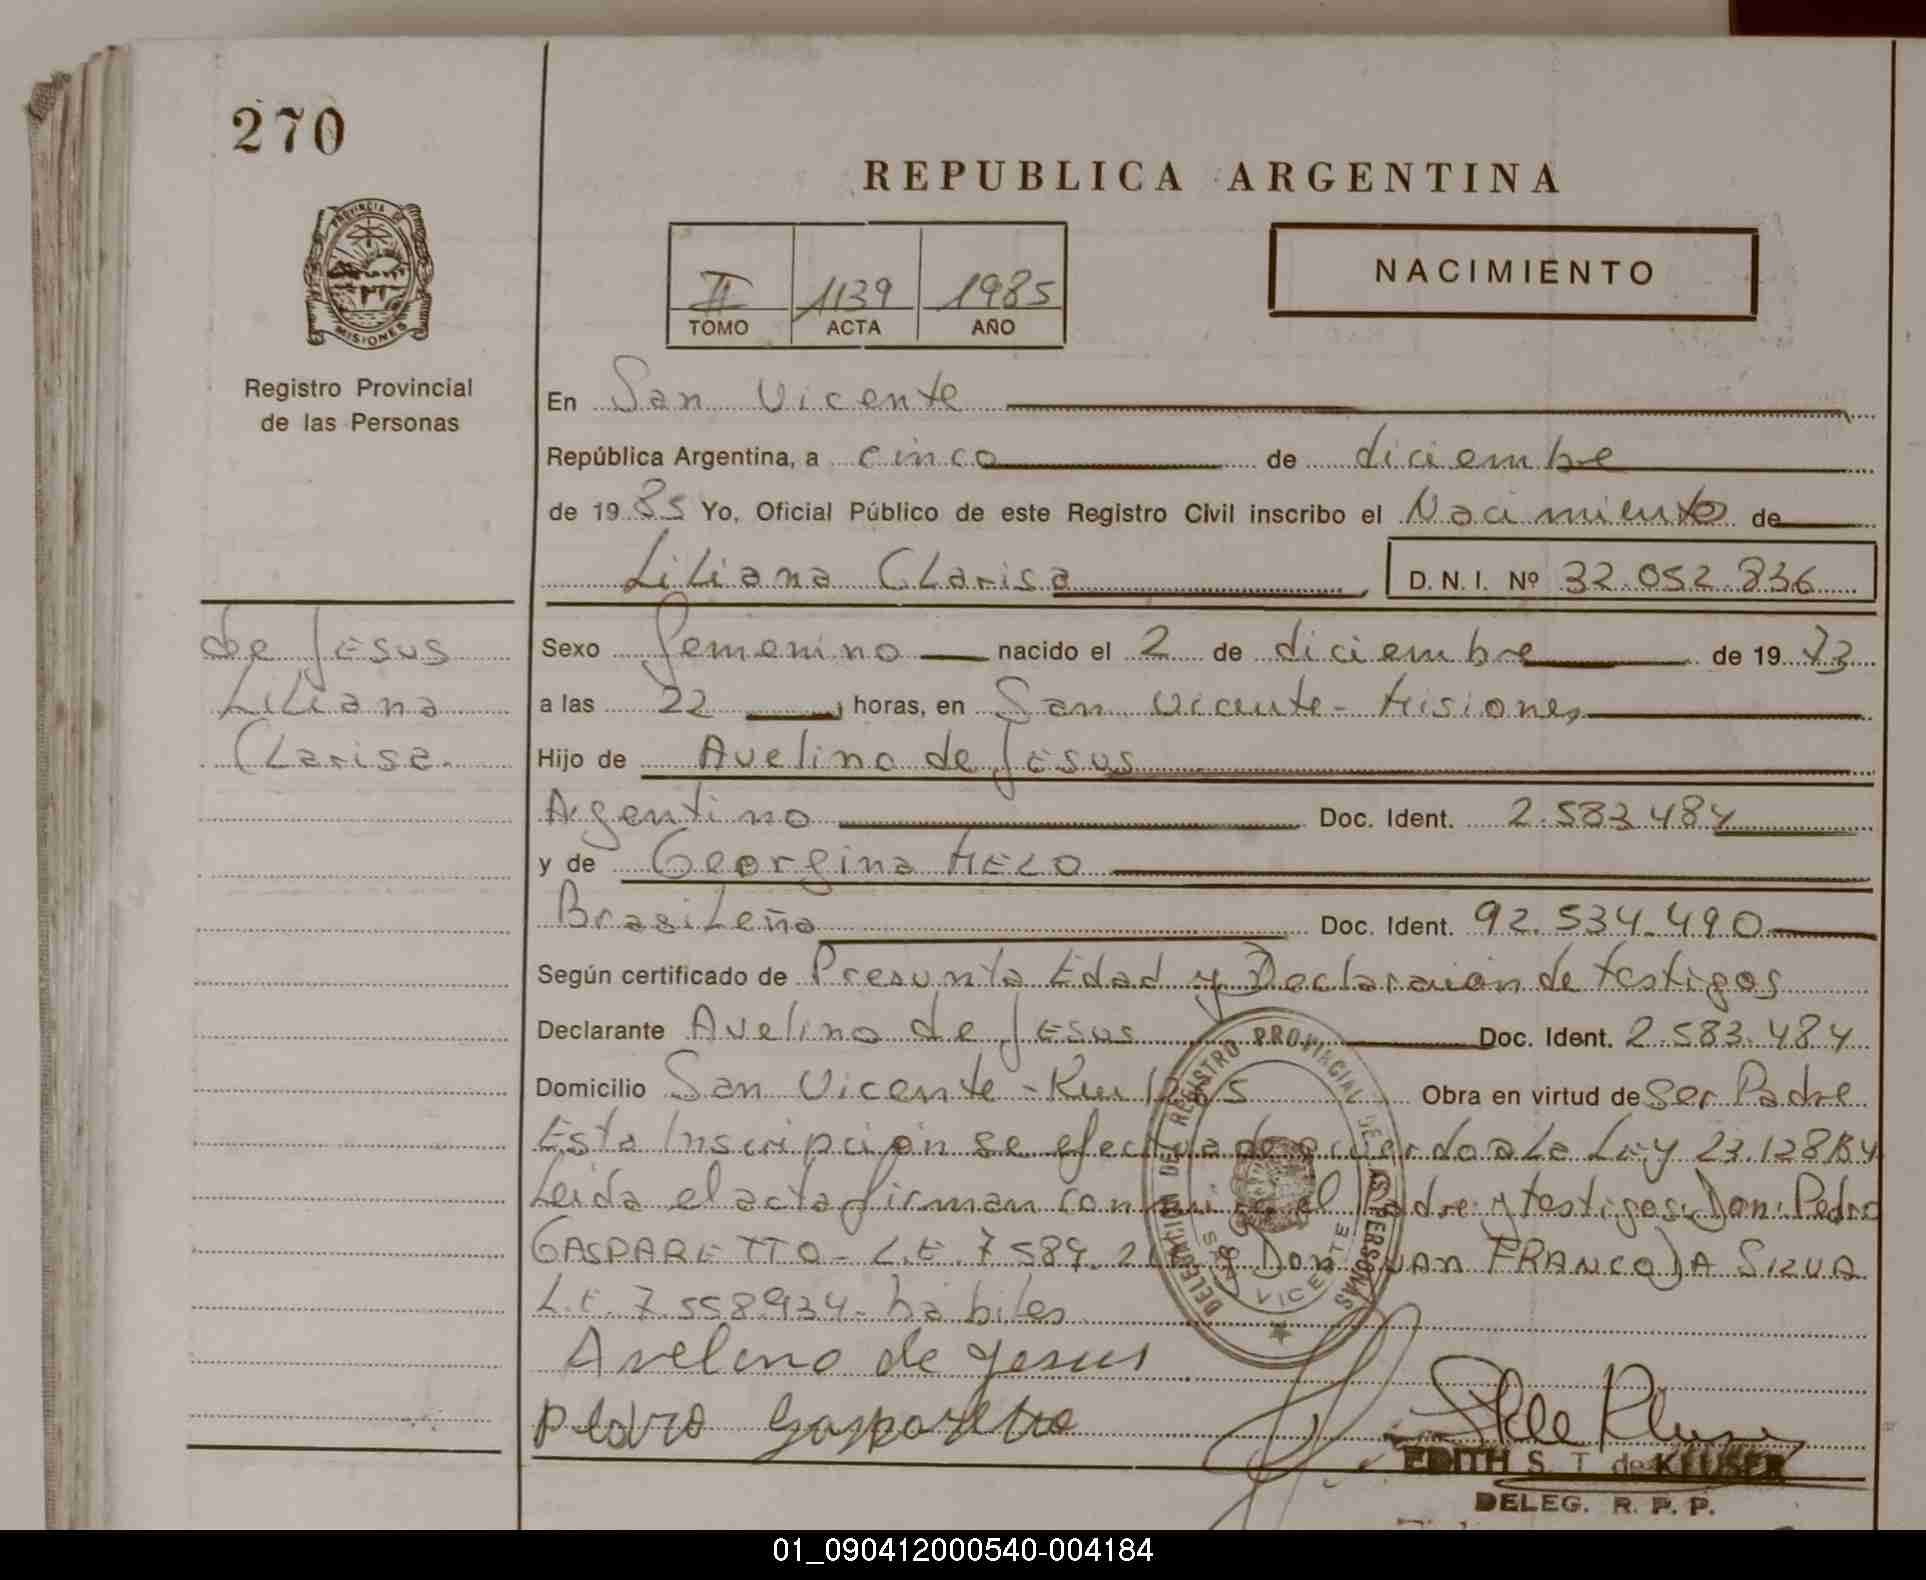 270
REPUBLICA ARGENTINA
PROVINCIA DE
MISIONES
Registro Provincial
de las Personas
II 1139 1985
TOMO ACTA AÑO
NACIMIENTO
En San Vicente
República Argentina, a cinco de diciembre
de 1985 Yo, Oficial Público de este Registro Civil inscribo el Nacimiento de
Liliana Clarisa D.N.I. Nº 32.052.836
de Jesus
Liliana
Clarisa.
Sexo femenino nacido el 2 de diciembre de 1973
a las 22 horas, en San Vicente - Misiones
Hijo de Avelino de Jesus
Argentino Doc. Ident. 2.583.484
y de Georgina MELO
Brasileña Doc. Ident. 92.534.490
Según certificado de Presunta Edad y Declaración de testigos
Declarante Avelino de Jesus Doc. Ident. 2.583.484
Domicilio San Vicente - Km 1215 Obra en virtud de ser Padre
Esta Inscripción se efectua de acuerdo a La Ley 23.128
Leida el acta firman con mi go el Padre y testigos Don: Pedro
GASPARETTO - L.E. 7.589. Don JUAN FRANCO DA SILVA
L.E. 7.558934 - habiles
DELEGACION DEL REGISTRO PROVINCIAL DE LAS PERSONAS
SAN VICENTE
Avelino de Jesus
Pedro Gasparetto
EDITH S. T. de KLUSER
DELEG. R. P. P.
01_090412000540-004184